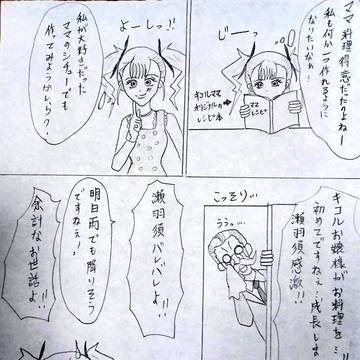 ママ料理得意だったのよねー
私も何か一つ作れるように
なりたいなぁ!
じーっ
キコルママ
オリジナルの
レシピ本
ママ
レシピ
よーしっ!!
私が大好きだった
ママのシチューでも
作ってみようかしらっ?
キコルお嬢様がお料理を…
初めてですねぇ…成長しま
瀬羽須感激!!
こっそり…
ううっ…
瀬羽須バレバレよ!!
明日雨でも降りそう
ですねぇ!
余計なお世話よ!!